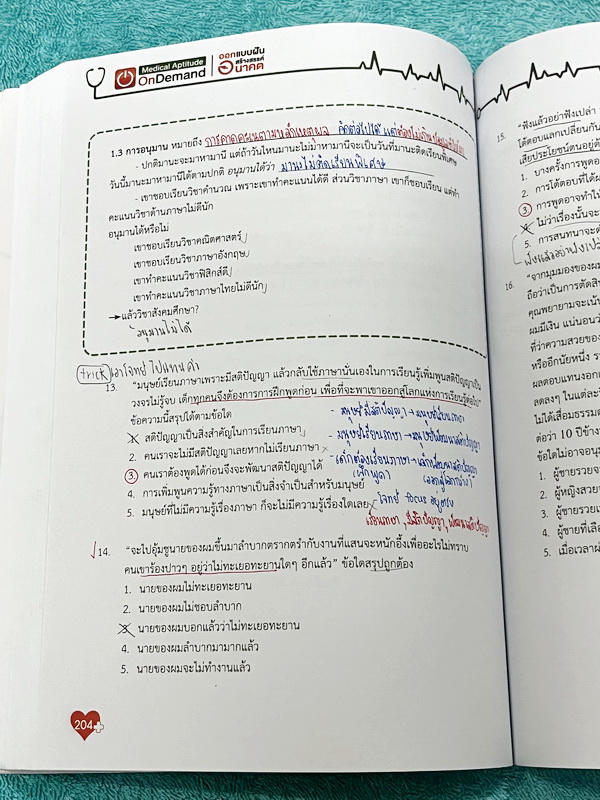 Medical Aptitude
OnDemand
ออกแบบฝัน
สร้างสรรค์
อนาคต
1.3 การอนุมาน หมายถึง การคาดคะเนตามหลักเหตุผล คิดต่อไปได้ แต่ต้องไม่เกิน
- ปกติมานะจะมาหามานี แต่ถ้าวันไหนมานะไม่มาหามานีจะเป็นวันที่มานะติดเรียนพิเศษ
วันนี้มานะมาหามานีได้ตามปกติ อนุมานได้ว่า มานะไม่ติดเรียนพิเศษ
- เขาชอบเรียนวิชาคำนวณ เพราะเขาทำคะแนนได้ดี ส่วนวิชาภาษา เขาก็ชอบเรียน แต่ทำ
คะแนนวิชาด้านภาษาไม่ดีนัก
อนุมานได้หรือไม่
เขาชอบเรียนวิชาคณิตศาสตร์
เขาชอบเรียนวิชาภาษาอังกฤษ
เขาทำคะแนนวิชาฟิสิกส์ดี
เขาทำคะแนนวิชาภาษาไทยไม่ดีนัก
แล้ววิชาสังคมศึกษา?
อนุมานไม่ได้
trick เอาโจทย์ ไปแทนค่า
13. "มนุษย์เรียนภาษาเพราะมีสติปัญญา แล้วกลับใช้ภาษานั่นเองในการเรียนรู้เพิ่มพูนสติปัญญาเป็น
วงจรไม่รู้จบ เด็กทุกคนจึงต้องการการฝึกพูดก่อน เพื่อที่จะพาเขาออกสู่โลกแห่งการเรียนรู้ต่อไป"
ข้อความนี้สรุปได้ตามข้อใด
1. สติปัญญาเป็นสิ่งสำคัญในการเรียนภาษา
2. คนเราจะไม่มีสติปัญญาเลยหากไม่เรียนภาษา
3. คนเราต้องพูดได้ก่อนจึงจะพัฒนาสติปัญญาได้
4. การเพิ่มพูนความรู้ทางภาษาเป็นสิ่งจำเป็นสำหรับมนุษย์
5. มนุษย์ที่ไม่มีความรู้เรื่องภาษา ก็จะไม่มีความรู้เรื่องใดเลย
- มนุษย์มีสติปัญญา → มนุษย์เรียนภาษา
- มนุษย์เรียนภาษา → มนุษย์พัฒนาสติปัญญา
- เด็กต้องเรียนภาษา → เด็กพัฒนาสติปัญญา
(ฝึกพูด)
โจทย์ focus อยู่ตรง
เรียนภาษา, มีสติปัญญา, พัฒนาสติปัญญา
14. "จะไปอุ้มชูนายของผมขึ้นมาลำบากตรากตรำกับงานที่แสนจะหนักอึ้งเพื่ออะไรไม่ทราบ
คนเขาร้องปาวๆ อยู่ว่าไม่ทะเยอทะยานใดๆ อีกแล้ว" ข้อใดสรุปถูกต้อง
1. นายของผมไม่ทะเยอทะยาน
2. นายของผมไม่ชอบลำบาก
3. นายของผมบอกแล้วว่าไม่ทะเยอทะยาน
4. นายของผมลำบากมามากแล้ว
5. นายของผมจะไม่ทำงานแล้ว
204
15. "ฟังแล้วอย่าฟังเปล่า
โต้ตอบแลกเปลี่ยนกัน
เสียประโยชน์ตนอยู่
1. บางครั้งการพูดอ
2. การโต้ตอบที่ได้ผ
3. การพูดอาจทำให้
4. ไม่ว่าเรื่องนั้นจะ
5. การสนทนาจะต
16. "จากมุมมองของผม
ถือว่าเป็นการตัดสิน
คุณพยายามจะเน้น
ผมมีเงิน แน่นอนว่
ที่ว่าความสวยของ
หรืออีกนัยหนึ่ง ร
ผลตอบแทนงอกเ
ลดลงๆ ในแต่ละปี
ไม่ได้เสื่อมธรรมด
ต่อว่า 10 ปีข้าง
ข้อใดไม่อาจอนุม
1. ผู้ชายรวยจะ
2. ผู้หญิงสวย
3. ผู้ชายรวยแ
4. ผู้ชายที่เลือ
5. เมื่อเวลาผ่